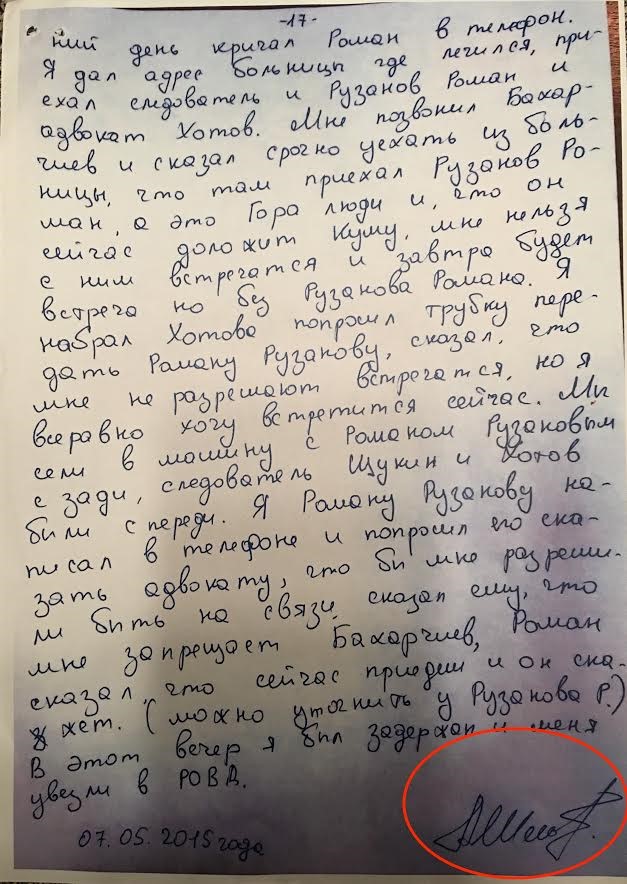 -17-
ний день кричал Роман в телефон.
Я дал адрес больницы где лечился, при-
ехал следователь и Рузанов Роман и
адвокат Хотов. Мне позвонил Бахар-
чиев и сказал срочно уехать из боль-
ницы, что там приехал Рузанов Ро-
ман, а это Гора люди и, что он
сейчас доложит Куму, мне нельзя
с ним встречатся и завтра будет
встреча но без Рузанова Романа. Я
набрал Хотова попросил трубку пере-
дать Роману Рузанову, сказал, что
мне не разрешают встречатся, но я
всеравно хочу встретится сейчас. Мы
сели в машину с Романом Рузановым
с зади, следователь Щукин и Хотов
били спереди. Я Роману Рузанову на-
писал в телефоне и попросил его ска-
зать адвокату, что би мне разреши-
ли бить на связи, сказал ему, что
мне запрещает Бахарчиев, Роман
сказал, что сейчас приедем и он ска-
жет. (можно уточнить у Рузанова Р.)
В этот вечер я бил задержан и меня
увезли в РОВД.
07.05.2015года